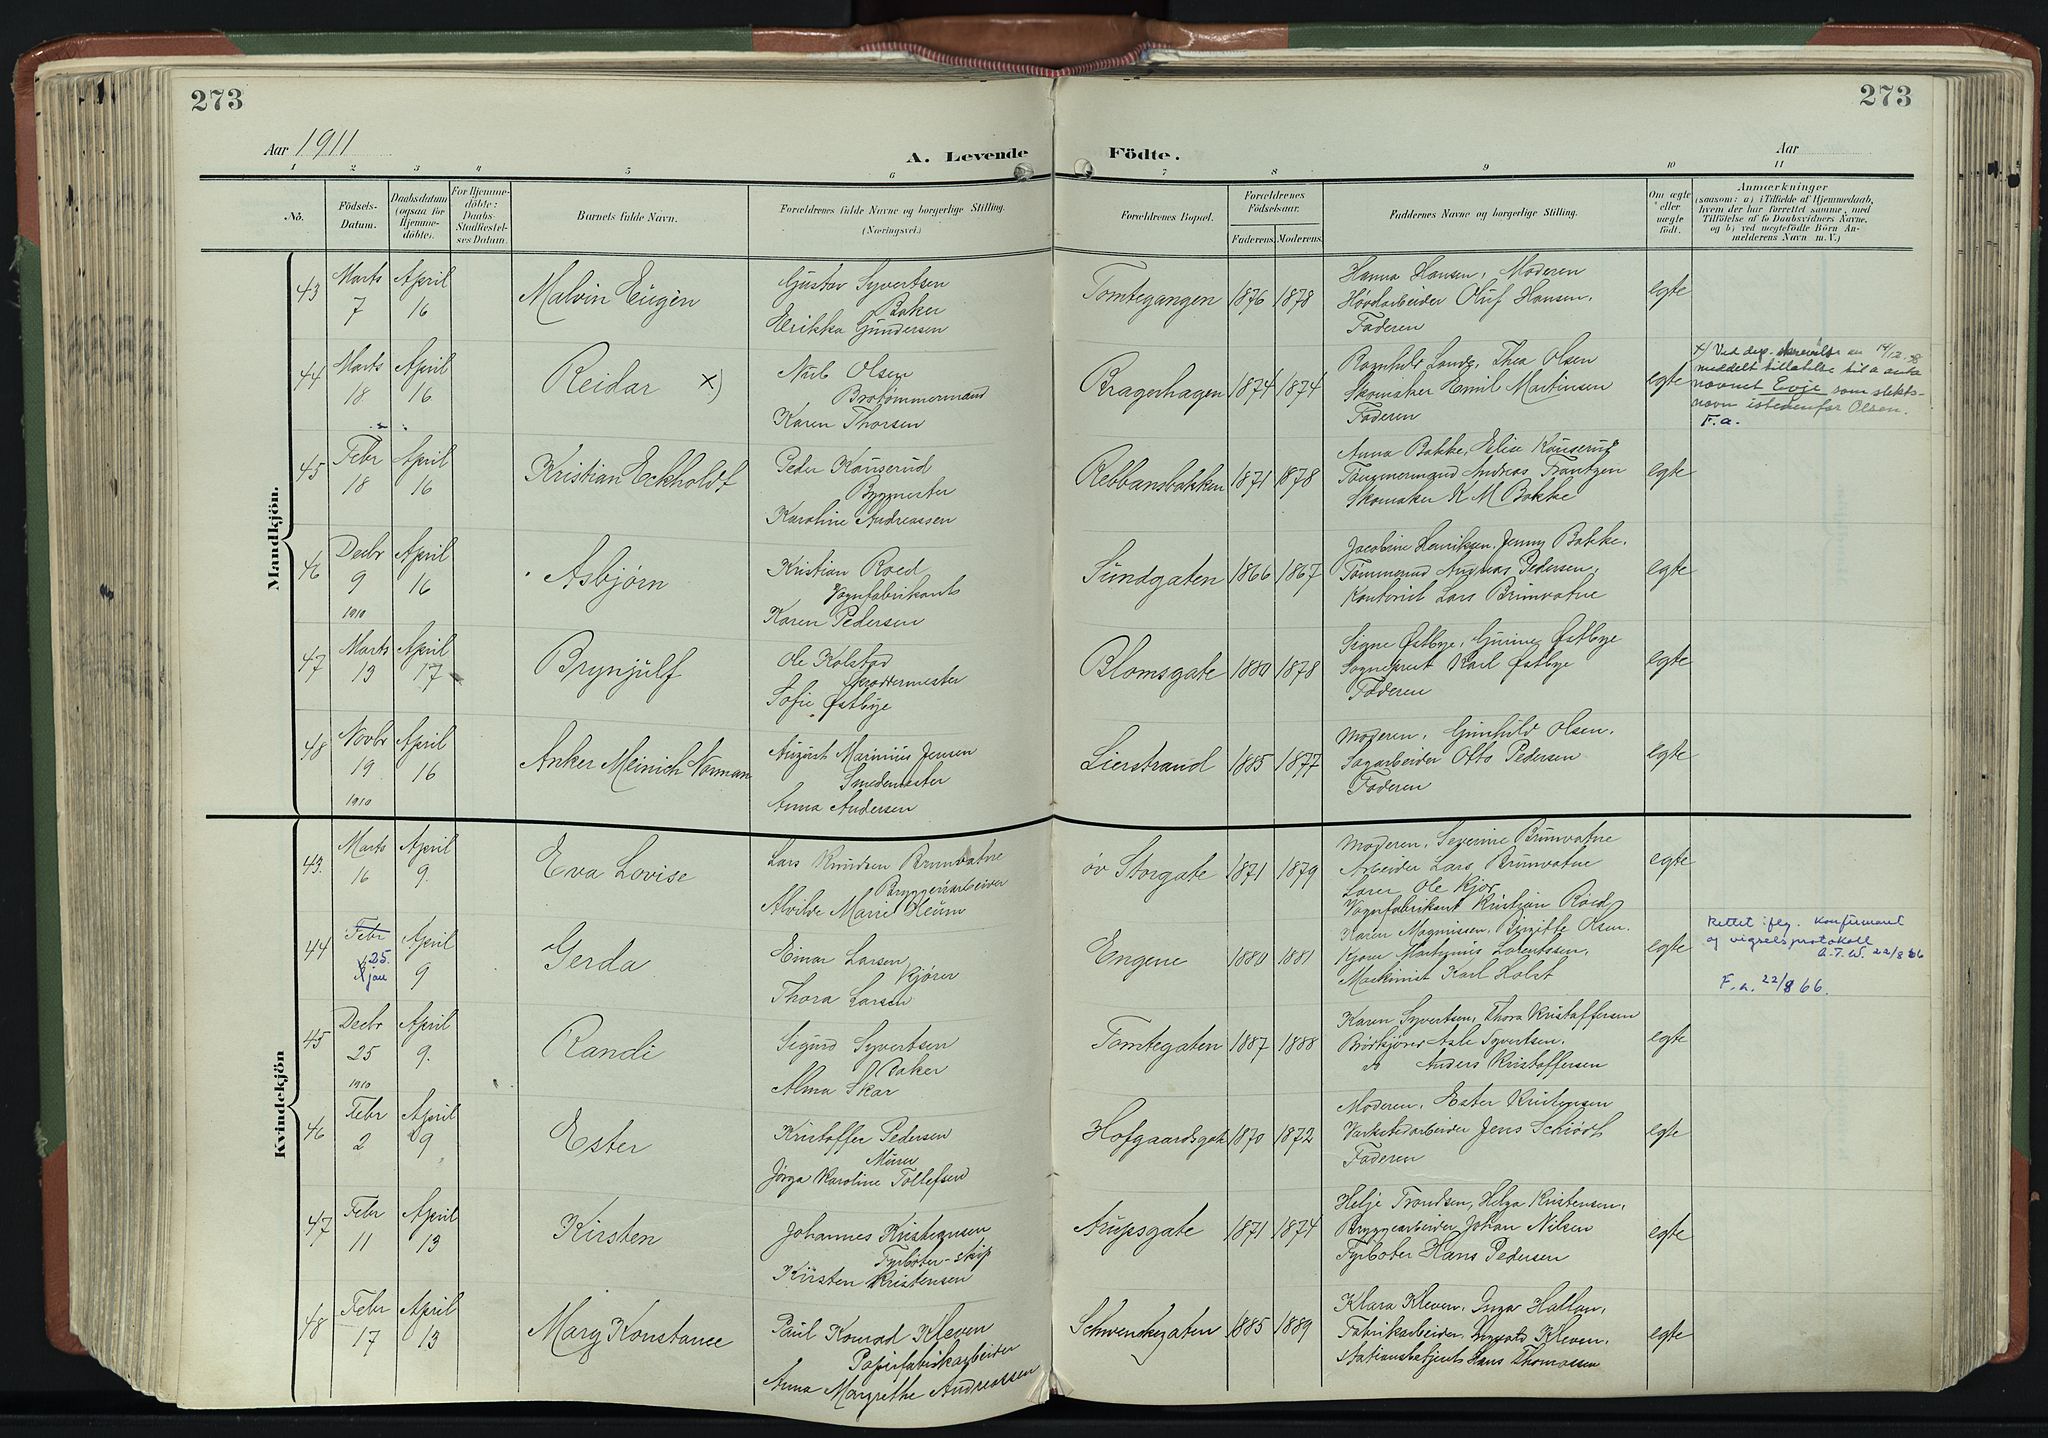 273
273
Aar 1911
A. Levende
Födte.
Aar
1 2 3 4 5 6 7 8 9 10 11
No.
Födsels-Datum.
Daabsdatum (ogsaa for Hjemme-döbte).
For Hjemme-döbte: Daabs-Stadfæstel-ses Datum.
Barnets fulde Navn.
Forældrenes fulde Navne og borgerlige Stilling. (Næringsvei.)
Forældrenes Bopæl.
Forældrenes Födselsaar.
Faderens.
Moderens.
Faddernes Navne og borgerlige Stilling.
Om ægte eller uægte födt.
Anmærkninger
(saasom: a) i Tilfælde af Hjemmedaab, hvem der har forrettet samme, med Tilföielse af to Daabsvidners Navne, og b) ved uægtefödte Börn An-melderens Navn m. V.)
Mandkjön.
43 Marts 7 April 16 Malvin Eugen
Gustav Syvertsen
Baker
Erikka Gundersen
Tomtegangen 1876 1878
Hanna Hansen, Moderen
Høvlarbeider Oluf Hansen,
Faderen
egte
44 Marts 18 April 16 Reidar x)
Nils Olsen
Brotømmermand
Karen Thorsen
Bragerhagen 1874 1874
Ragnhild Lund, Thea Olsen
Skomaker Emil Martinsen
Faderen
egte
x) Ved dep. skrevelse av 14/12
meddelt tillatelse til å anta
navnet Evje som slekts-
navn istedenfor Olsen.
F.a.
45 Febr 18 April 16 Kristian Eckholdt
Peder Kauserud
Bygmester
Karoline Andreassen
Rebbansbakken 1871 1878
Anna Bakke, Elise Kauserud
Tømmermand Andreas Frantzen
Skomaker K M Bakke
egte
46 Decbr 9 1910 April 16 Asbjørn
Kristian Roed
Vognfabrikant
Karen Pedersen
Sundgaten 1866 1867
Jacobine Henriksen, Jenny Bakke,
Tømmermd Andreas Pedersen,
Kontorist Lars Brunvatne
egte
47 Marts 13 April 17 Brynjulf
Ole Kolstad
Skræddermester
Sofie Østbye
Blomsgate 1880 1878
Signe Østbye, Gurine Østbye
Sogneprest Karl Østbye
Faderen
egte
48 Novbr 19 1910 April 16 Anker Meinich Norman
August Marinius Jensen
Smedemester
Anna Andersen
Lierstrand 1885 1877
Moderen, Gunhild Olsen,
Sagarbeider Otto Pedersen
Faderen
egte
Kvindekjön
43. Marts 16 April 9. Eva Lovise
Lars Knudsen Brunvatne
Bryggeriarbeider
Alvilde Marie Heum
øv Storgate 1871 1879
Moderen, Severine Brunvatne
Arbeider Lars Brunvatne
Lærer Ole Kjos
Vognfabrikant Kristian Roed
egte
44 Febr 25. jan April 9 Gerda
Einar Larsen
Kjører
Thora Larsen
Engene 1880 1881
Karen Magnussen, Birgitte Olsen,
Kjører Martinius Lorentssen,
Maskinist Karl Holst
egte
Rettet iflg. konfirmant
og vigselsprotokoll
A.T.W. 22/8 66
F.a. 22/8 66.
45 Decbr 25 1910 April 9. Randi
Sigurd Syvertsen
Baker
Alma Skar
Tomtegaten 1887 1888
Karen Syvertsen, Thora Kristoffersen
Brødkjører Asle Syvertsen,
do Anders Kristoffersen
egte
46 Febr 2 April 9 Ester
Kristoffer Pedersen
Murer
Jørga Karoline Tollefsen
Hofgaardsgate 1870 1872
Moderen, Ester Kristensen
Verkstedarbeider Jens Schiødt
Faderen
egte
47 Febr 11 April 13 Kirsten
Johannes Kristiansen
Fyrbøter - skip
Kirsten Kristensen
Aupsgate 1871 1874
Helje Trondsen, Helga Kristensen,
Bryggearbeider Johan Nilsen
Fyrbøter Hans Pedersen
egte
48 Febr 17 April 13 Mary Konstance
Paul Konrad Kleven
Papirfabrikarbeider
Anna Margrethe Andreassen
Schwenckegaten 1885 1889
Klara Kleven, Inga Hallan,
Fabrikarbeider, Ingvald Kleven,
Stationsbetjent Hans Thomassen
egte